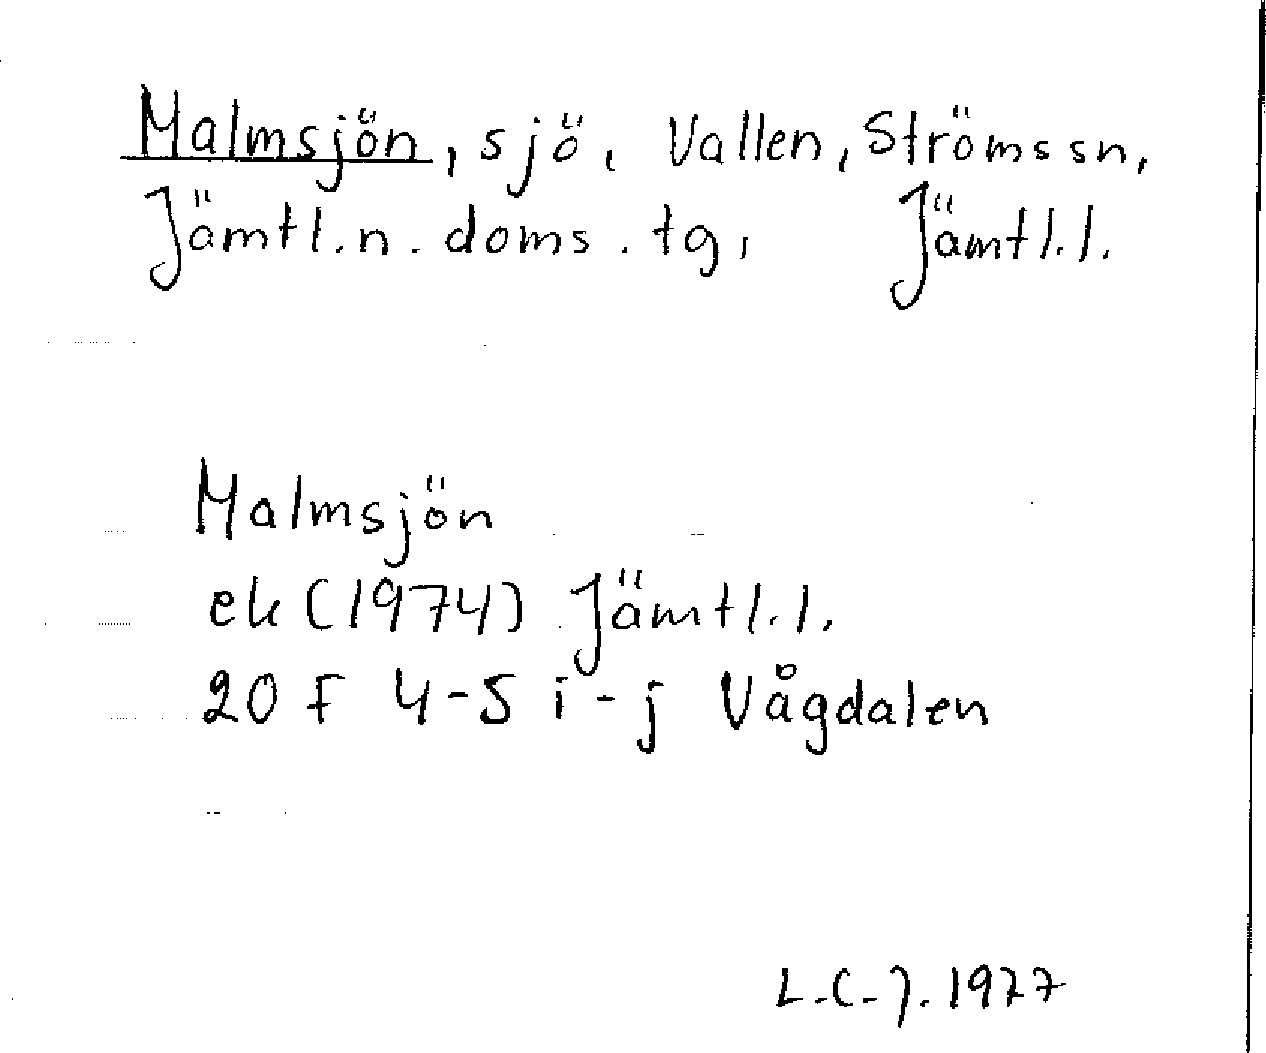 Malmsjön, sjö, Vallen, Ströms sn,
Jämtl. n. doms. tg, Jämtl. l.
Malmsjön
ek (1974) Jämtl. l.
20 F 4-5 i-j Vågdalen
L.-C. J. 1977